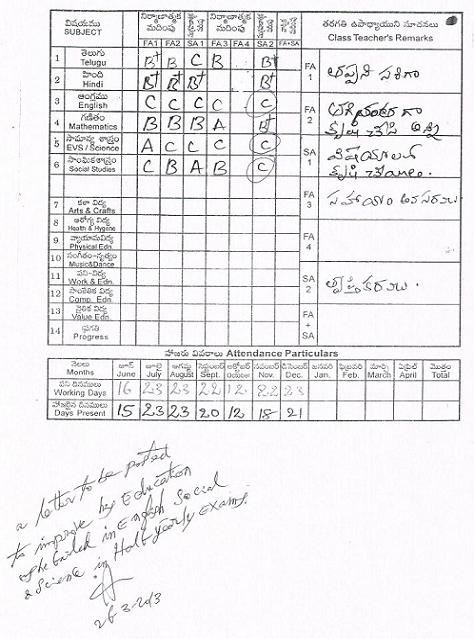 విషయము SUBJECT నిర్మాణాత్మక మదింపు నిర్మాణాత్మక మదింపు తరగతి ఉపాధ్యాయుని సూచనలు
FA1 FA2 SA1 FA3 FA4 SA2 FA+SA Class Teacher's Remarks
1 తెలుగు Telugu B+ B C B B+ FA 1
2 హింది Hindi B+ B+ B+ B+
3 ఆంగ్లము English C C C C C FA 2
4 గణితం Mathematics B B B A B+
5 సామాన్య శాస్త్రం EVS / Science A C C C C SA 1
6 సాంఘికశాస్త్రం Social Studies C B A B C
FA 3 సహాయం అవసరము.
7 కళా విద్య Arts & Crafts
8 ఆరోగ్య విద్య Health & Hygiene
9 వ్యాయామవిద్య Physical Edn. FA 4
10 సంగీతం-నృత్యం Music&Dance
11 పని-విద్య Work & Edn. SA 2
12 సాంకేతిక విద్య Comp. Edn.
13 నైతిక విద్య Value Edn. FA + SA
14 ప్రగతి Progress
హాజరు వివరాలు Attendance Particulars
నెలలు Months జూన్ June జూలై July ఆగష్టు August సెప్టెంబర్ Sept. అక్టోబర్ నవంబర్ Nov. డిసెంబర్ Dec. జనవరి Jan. ఫిబ్రవరి Feb. మార్చి March ఏప్రిల్ April మొత్తం Total
పని దినములు Working Days 16 23 23 22 12 22 23
హాజరైన దినములు Days Present 15 23 23 20 12 18 21
a letter to be posted
to improve by Education
she failed in English Social
& Science in Half yearly Exams.
26-3-2013